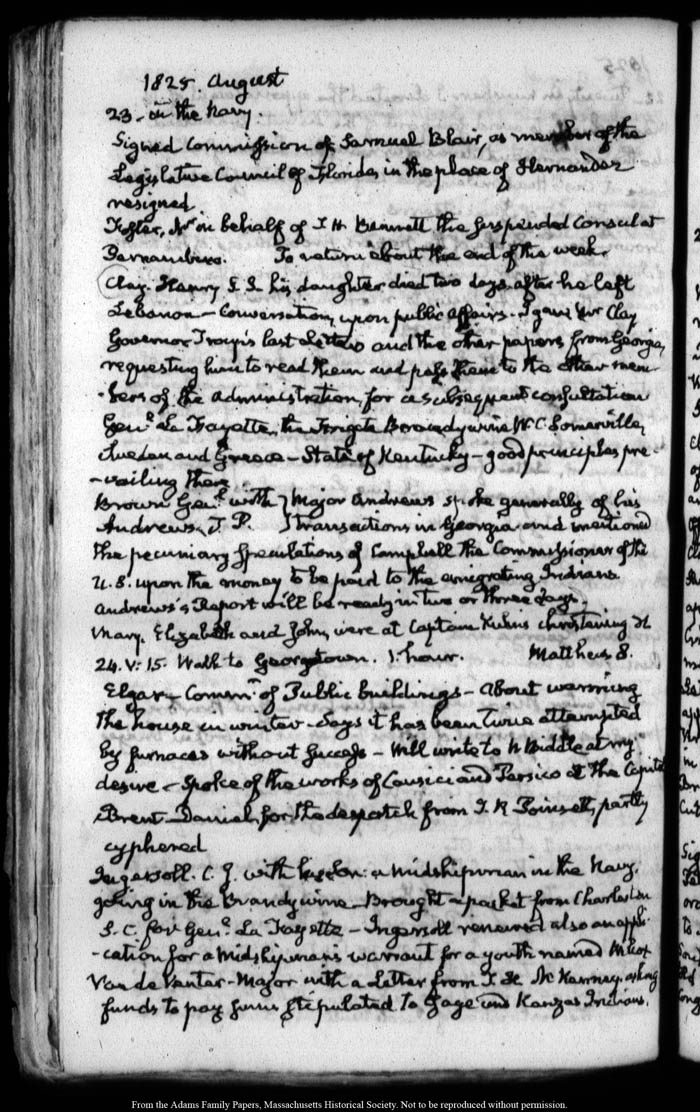 1825. August
23. in the Navy.
Signed Commission of Samuel Blair, as member of the
Legislative Council of Florida, in the place of Hernandez
resigned
Foster, Mr in behalf of J. H. Bennett the suspended Consul at
Pernambuco. To return about the end of the week.
Clay. Henry S. S. his daughter died two days after he left
Lebanon — Conversation, upon public affairs. I gave Mr Clay
Governor Troup's last Letters and the other papers from Georgia,
requesting him to read them and pass them to the other mem-
-bers of the administration, for a subsequent consultation
Genl. La Fayette, the Frigate Brandywine W. C. Somerville,
Sweden and Greece — State of Kentucky — good principles pre-
-vailing there
Brown Genl. with } Major Andrews spoke generally of his
Andrews, T. P. } transactions in Georgia and mentioned
the pecuniary speculations of Campbell the Commissioner of the
U. S. upon the money to be paid to the emigrating Indians
Andrews's Report will be ready in two or three days.
Mary, Elizabeth and John, were at Captain Kuhns christening
24. V: 15. Walk to Georgetown. 1. hour. Matthew 8.
Elgar — Commr. of Public buildings — About warming
the house in winter — Says it has been twice attempted
by furnaces without success — Will write to N Biddle at my
desire — Spoke of the works of Causici and Persico at the Capitol
Brent — Daniel, for the despatch from J. R Poinsett, partly
cyphered
Ingersoll. C. J. with his Son: a Midshipman in the Navy.
going in the Brandywine — Brought a packet from Charleston
S. C. for Genl. La Fayette — Ingersoll renewed also an appli-
-cation for a Midshipman's warrant for a youth named
Van de Venter — Major with a Letter from T. L. McKenney, asking
funds to pay sums stipulated to Osage and Kanzas Indians.
From the Adams Family Papers, Massachusetts Historical Society. Not to be reproduced without permission.